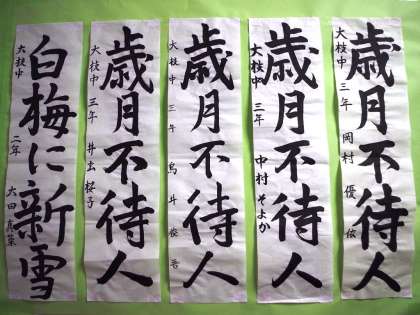 歳月不待人
大枝中 三年 岡村 優依
歳月不待人
大枝中 三年 中村 そよか
歳月不待人
大枝中 三年
歳月不待人
大枝中 三年 井出 桜子
白梅に新雪
大枝中 二年 太田